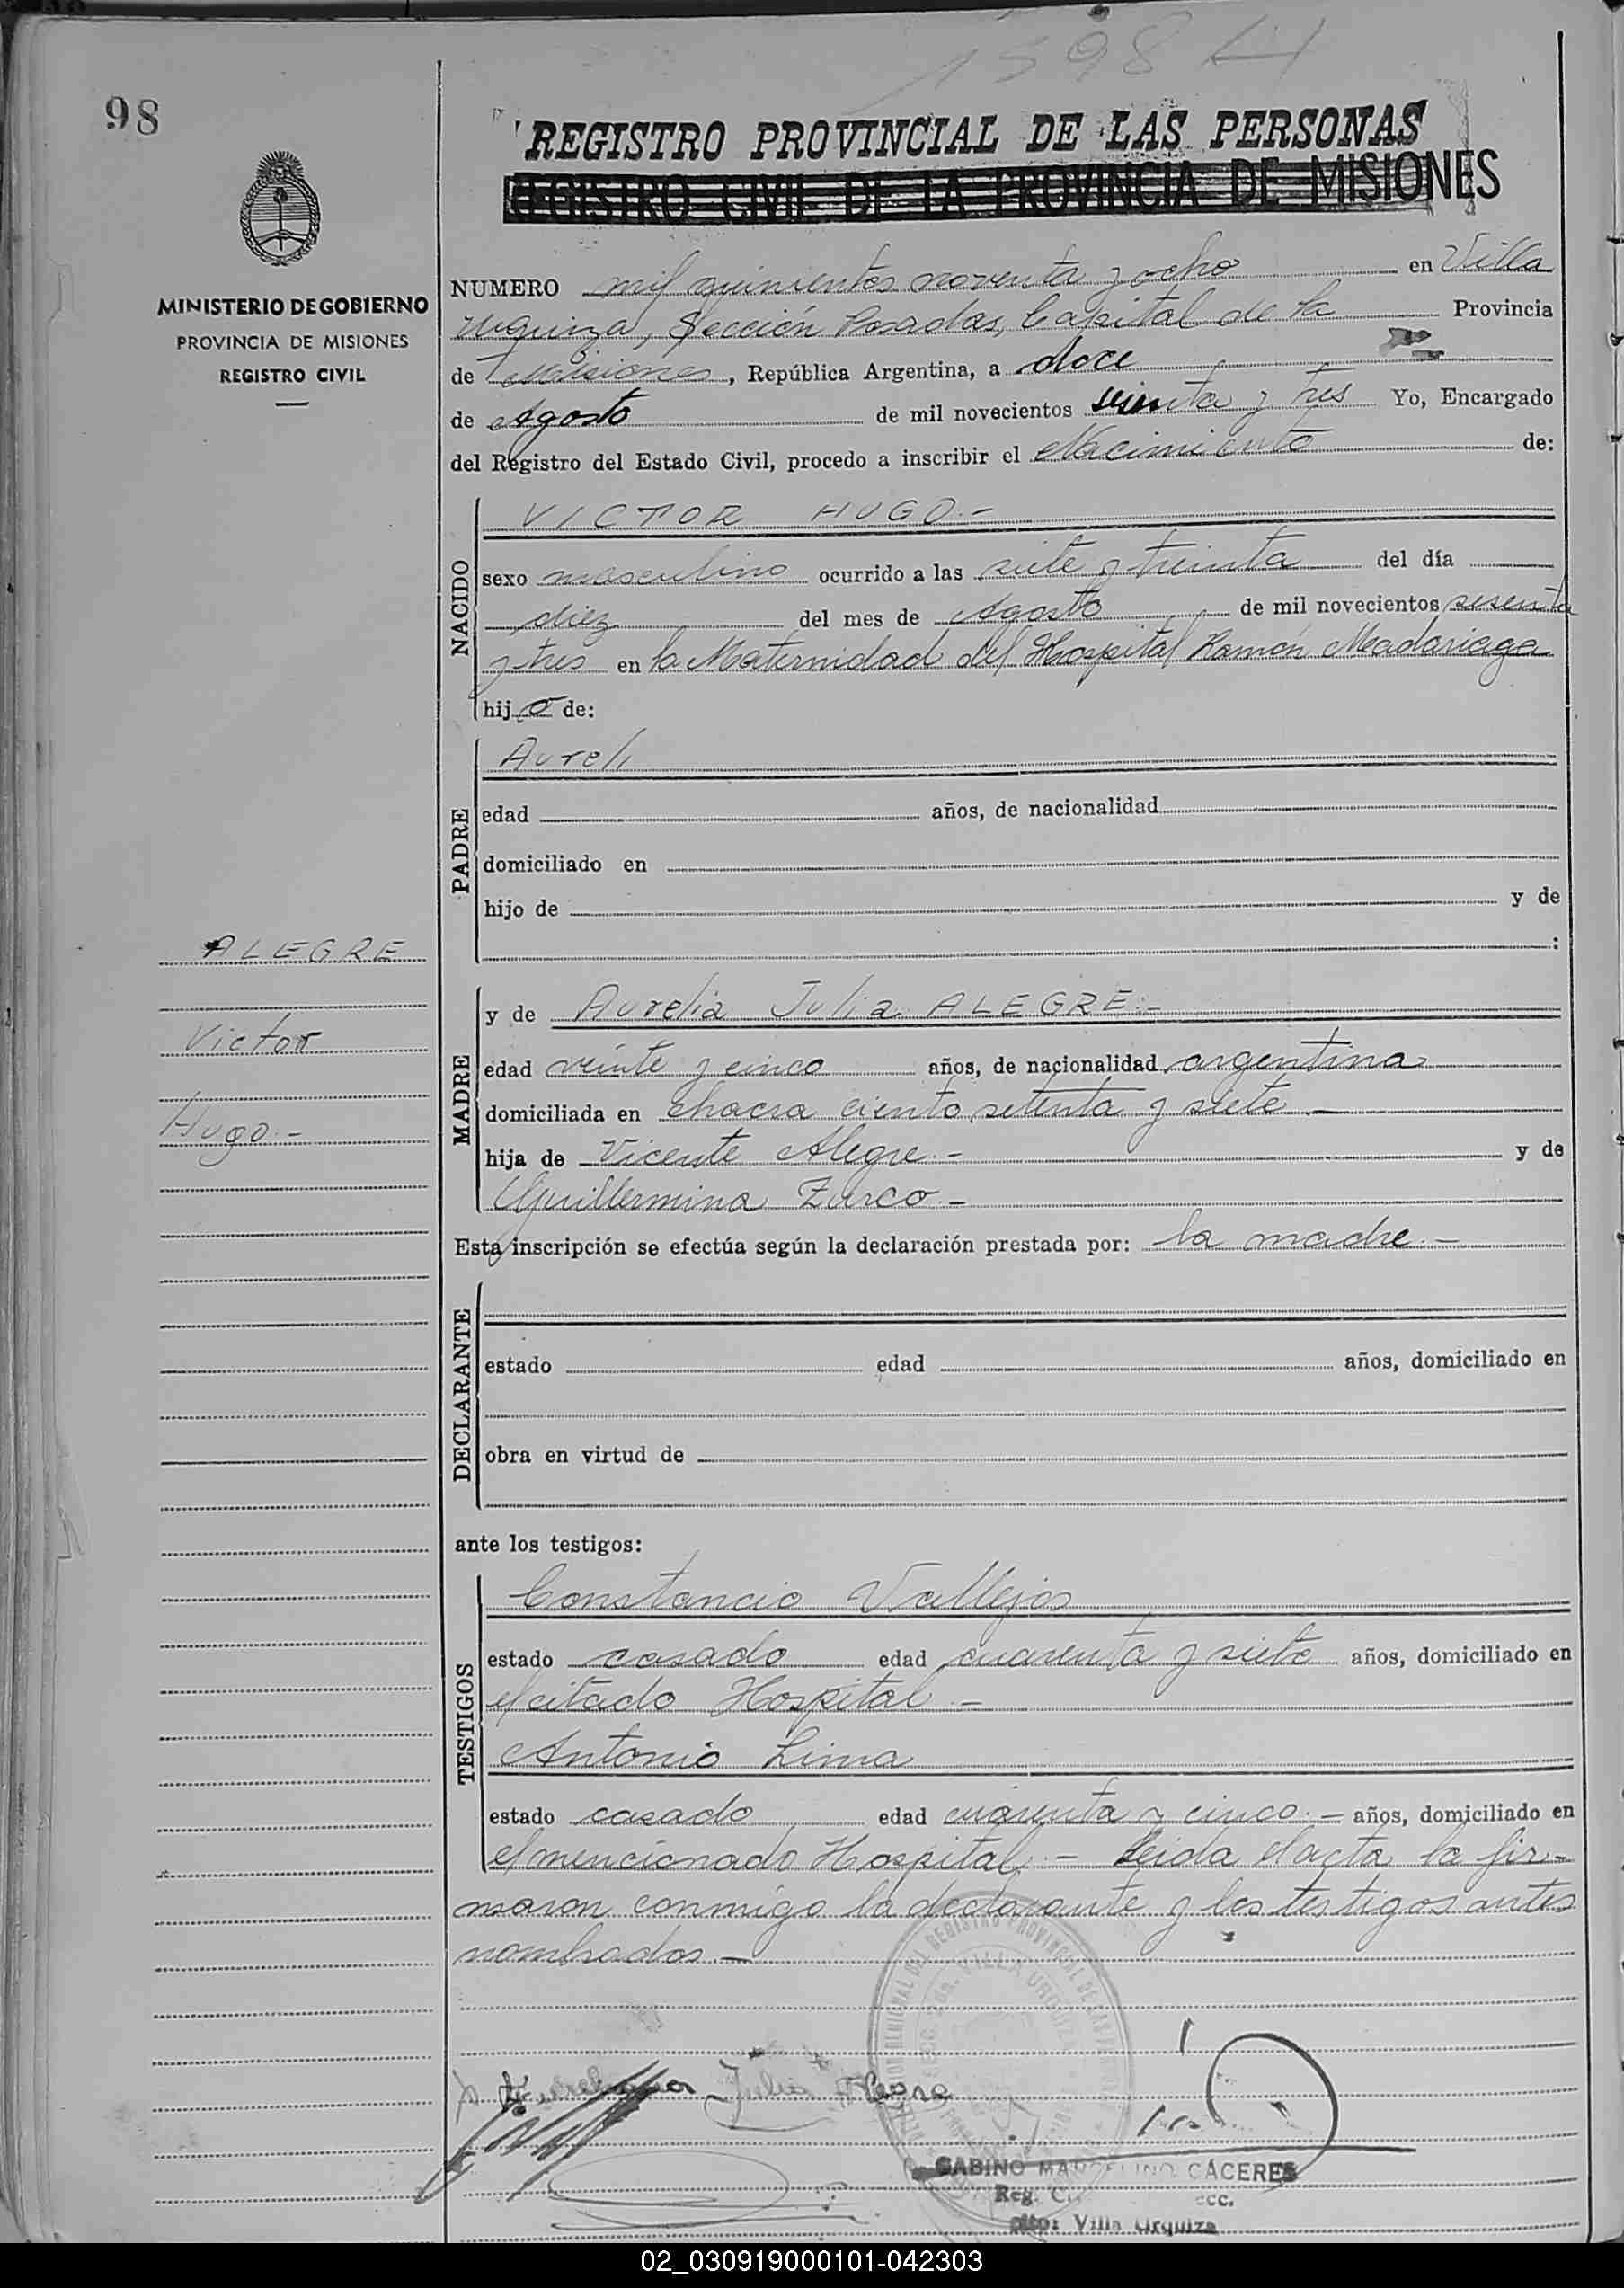 1598 H
98
REGISTRO PROVINCIAL DE LAS PERSONAS
REGISTRO CIVIL DE LA PROVINCIA DE MISIONES
MINISTERIO DE GOBIERNO
PROVINCIA DE MISIONES
REGISTRO CIVIL
NUMERO mil quinientos noventa y ocho en Villa
Urquiza, Sección Posadas, Capital de la Provincia
de Misiones, República Argentina, a doce
de Agosto de mil novecientos sesenta y tres Yo, Encargado
del Registro del Estado Civil, procedo a inscribir el Nacimiento de:
NACIDO
VICTOR HUGO.-
sexo masculino ocurrido a las siete y treinta del día
diez del mes de Agosto de mil novecientos sesenta
y tres en la Maternidad del Hospital Ramón Madariaga
hijo de:
PADRE
Aureli
edad años, de nacionalidad
domiciliado en
hijo de y de
:
ALEGRE
Victor
Hugo.-
MADRE
y de Aurelia Julia ALEGRE.-
edad veinte y cinco años, de nacionalidad argentina
domiciliada en chacra ciento setenta y siete -
hija de Vicente Alegre.- y de
Guillermina Zarco -
Esta inscripción se efectúa según la declaración prestada por: la madre.-
DECLARANTE
estado edad años, domiciliado en
obra en virtud de
ante los testigos:
TESTIGOS
Constancio Vallejos
estado casado edad cuarenta y siete años, domiciliado en
el citado Hospital.-
Antonio Lima
estado casado edad cuarenta y cinco.- años, domiciliado en
el mencionado Hospital.- Leida el acta la fir-
maron conmigo la declarante y los testigos antes
nombrados.-
Julia
GABINO MARCELINO CÁCERES
Reg.
Villa Urquiza
02_030919000101-042303